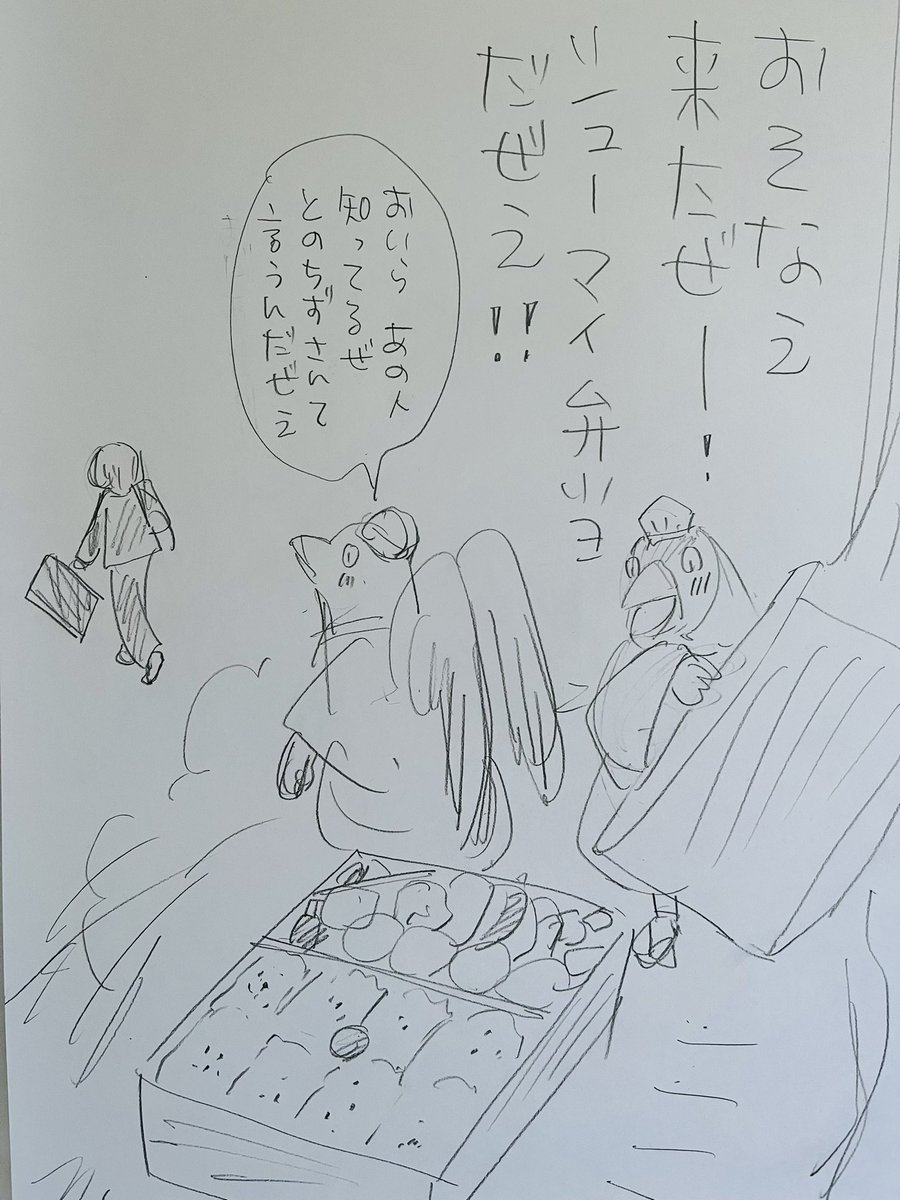 おそなえ
来たぜー!
シューマイ弁当
だぜえ!!
おいら あの人
知ってるぜ
とのちずさんて
言うんだぜえ